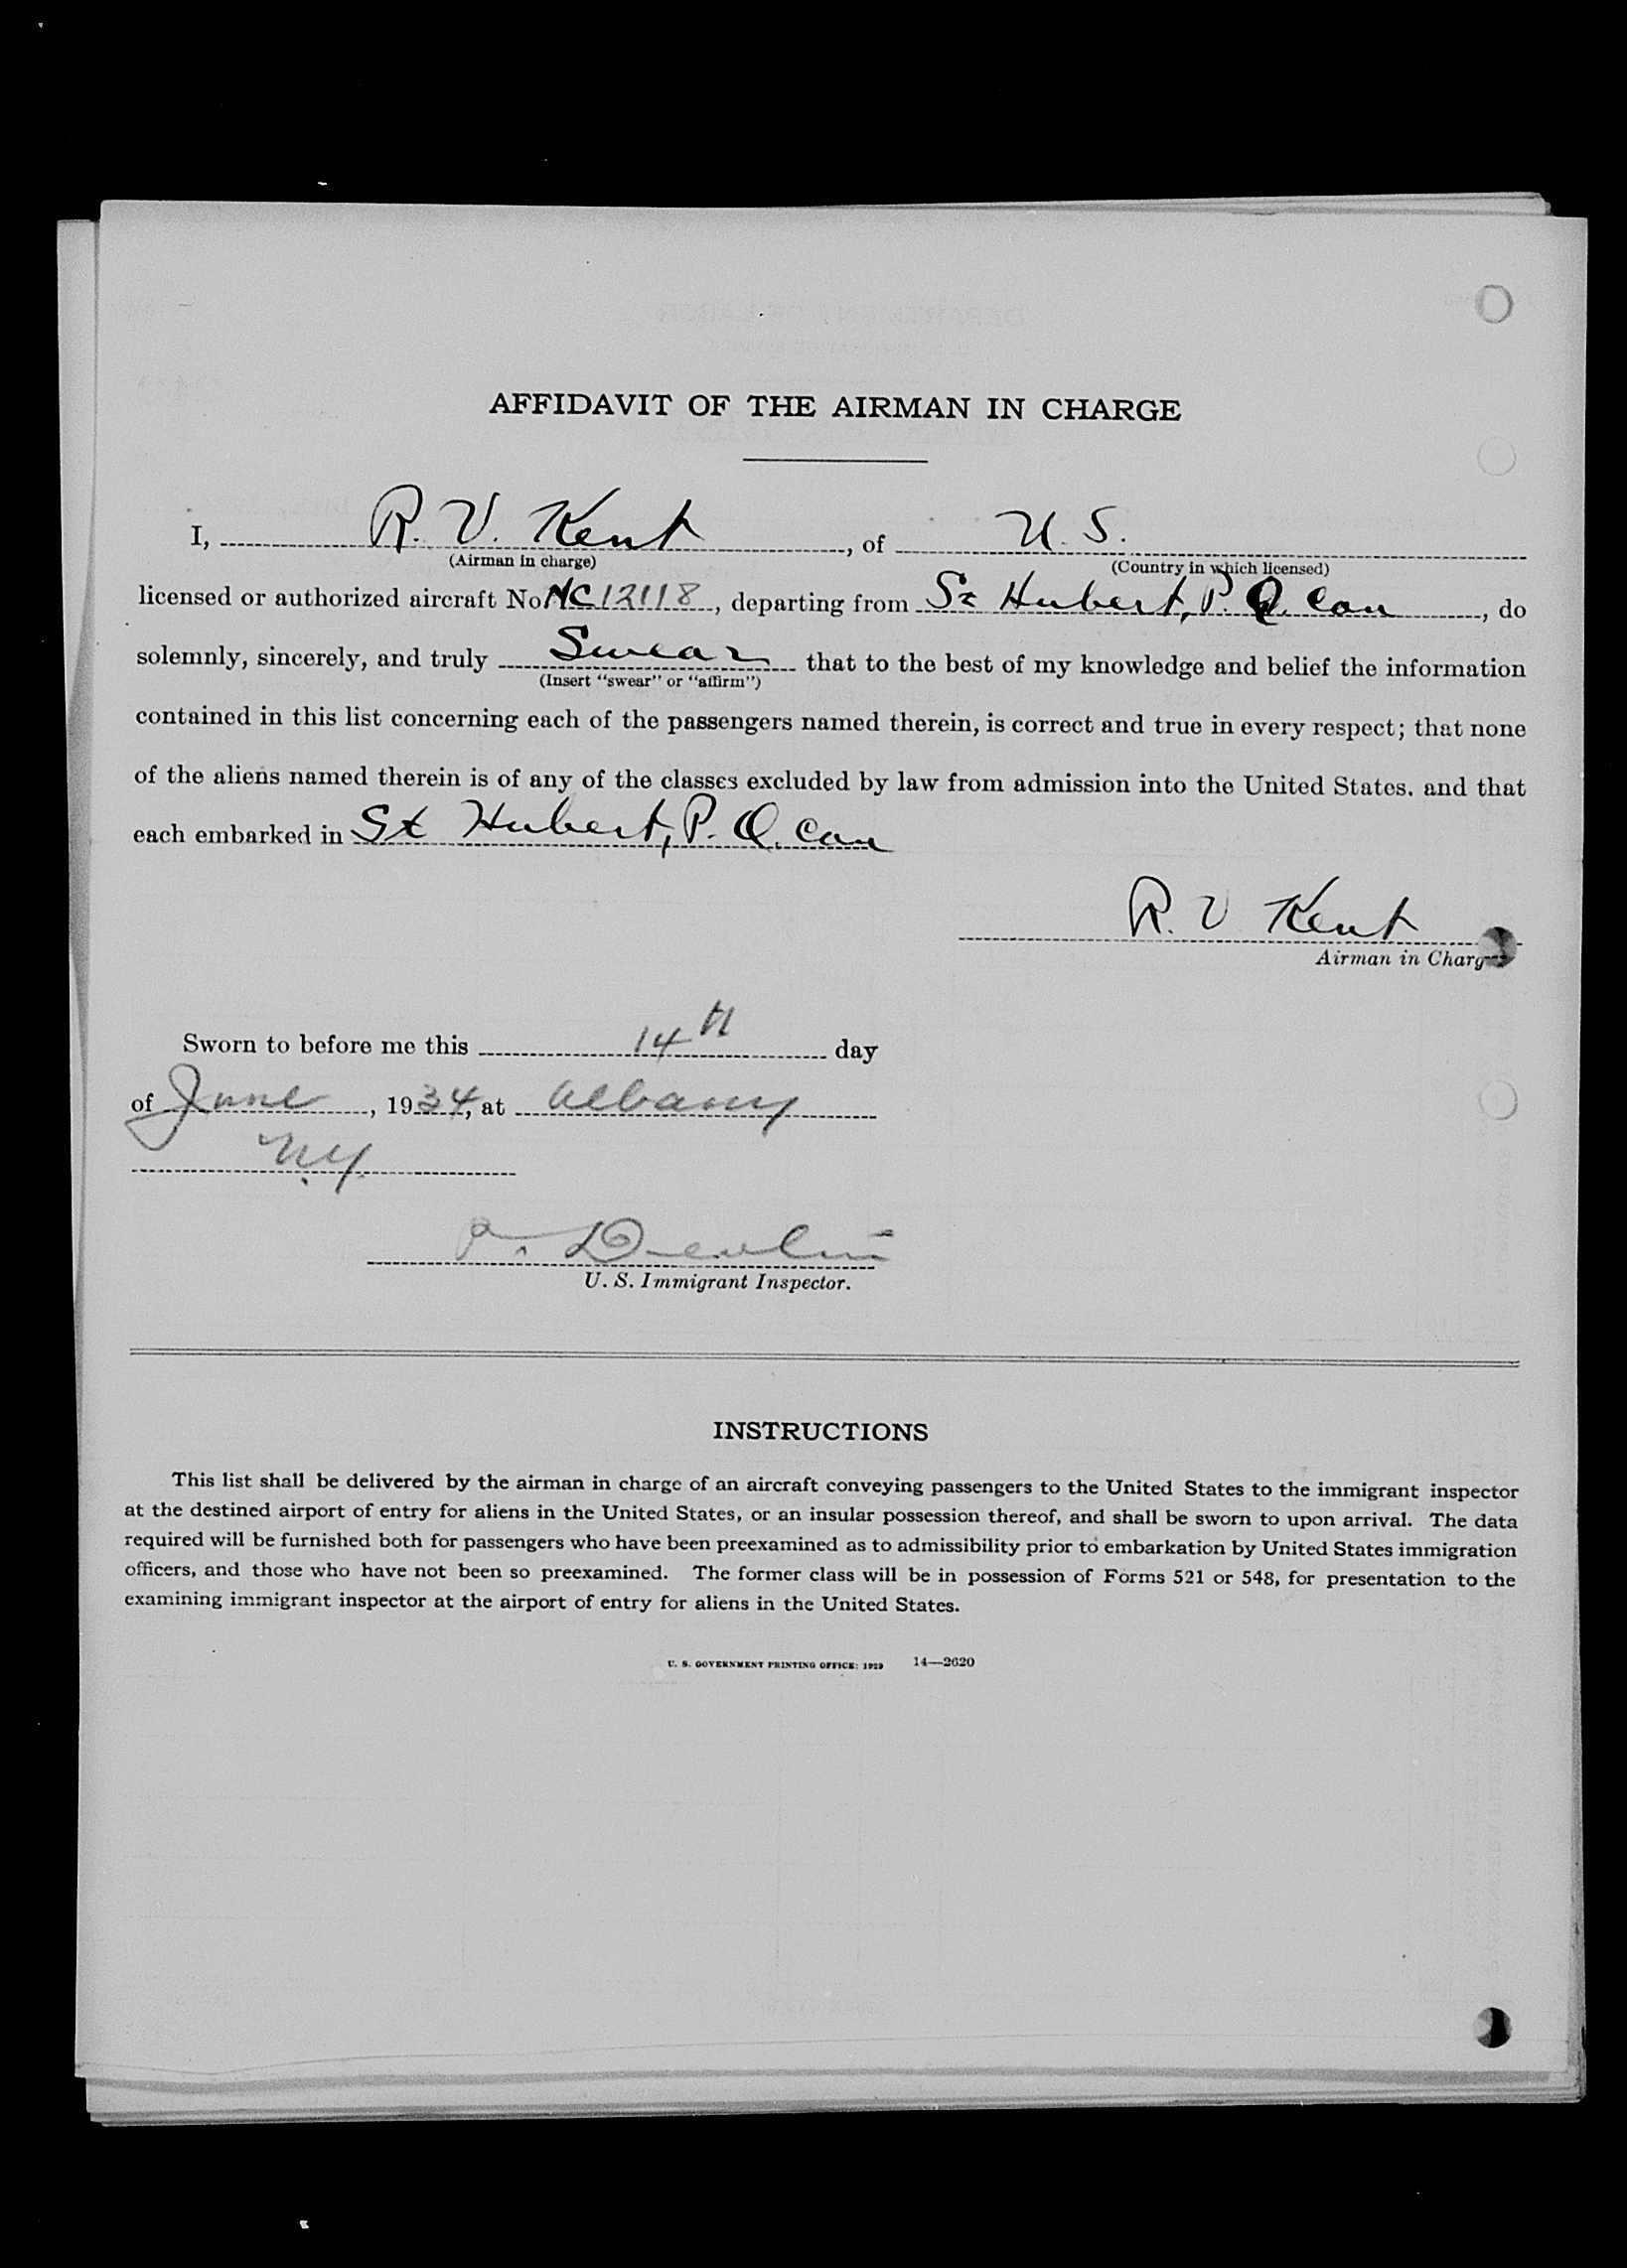 AFFIDAVIT OF THE AIRMAN IN CHARGE
I, R. V. Kent, of U. S.
(Airman in charge) (Country in which licensed)
licensed or authorized aircraft No. NC12118, departing from St Hubert, P. Q. Can, do
solemnly, sincerely, and truly Swear that to the best of my knowledge and belief the information
(Insert "swear" or "affirm")
contained in this list concerning each of the passengers named therein, is correct and true in every respect; that none
of the aliens named therein is of any of the classes excluded by law from admission into the United States. and that
each embarked in St Hubert, P. Q. Can
R. V Kent
Airman in Charge
Sworn to before me this 14th day
of June, 1934, at Albany
N.Y.
Devlin
U. S. Immigrant Inspector.
INSTRUCTIONS
This list shall be delivered by the airman in charge of an aircraft conveying passengers to the United States to the immigrant inspector
at the destined airport of entry for aliens in the United States, or an insular possession thereof, and shall be sworn to upon arrival. The data
required will be furnished both for passengers who have been preexamined as to admissibility prior to embarkation by United States immigration
officers, and those who have not been so preexamined. The former class will be in possession of Forms 521 or 548, for presentation to the
examining immigrant inspector at the airport of entry for aliens in the United States.
U. S. GOVERNMENT PRINTING OFFICE: 1929 14—2620